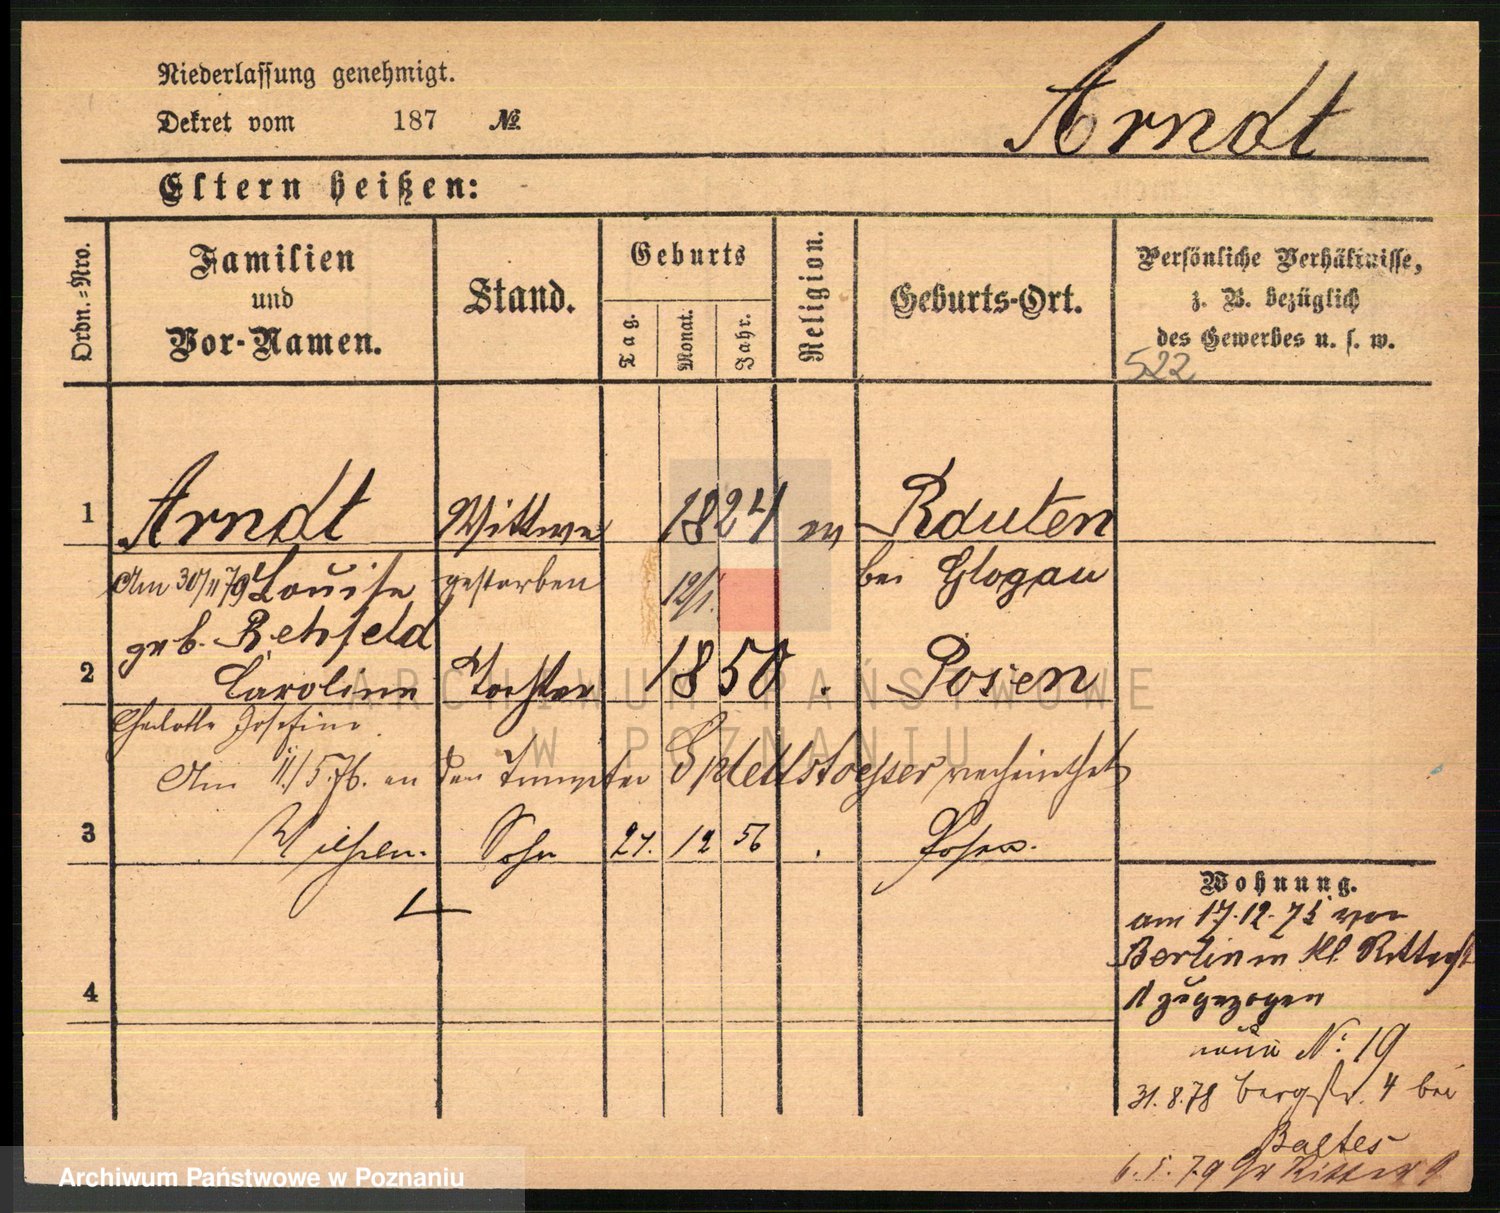 Niederlassung genehmigt.
Arndt
Dekret vom 187 №
Eltern heißen:
Ordn.=Nro.
Familien
und
Vor-Namen.
Stand.
Geburts
Tag.
Monat.
Jahr.
Religion.
Geburts-Ort.
Persönliche Verhältnisse,
z. B. bezüglich
des Gewerbes u. s. w.
522
1 Arndt Wittwe 1824 Rauten
Am 30/11 79 Louise gestorben 12/1. bei Glogau
geb. Rehfeld
2 Caroline Tochter 1850 Posen
Charlotte Josefine
Am 11/5.76. an den Splettstoesser verheirathet
3 Sohn 27. 12 56 Posen.
4
Wohnung.
am 17.12. von
Berlin Kl. Ritterstr
1 zugezogen
neue No: 19
31.8.78 Bergstr. 4 bei
Baltes
6. 5. 79 Gr Ritterst 9
ARCHIWUM PAŃSTWOWE
W POZNANIU
Archiwum Państwowe w Poznaniu